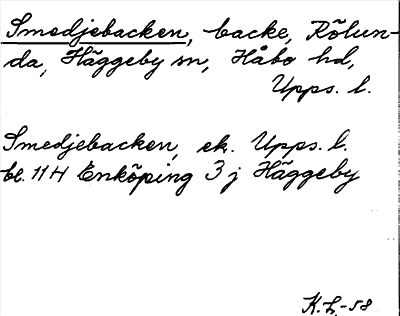 Smedjebacken, backe, Rölun-
da, Häggeby sn, Håbo hd,
Upps. l.
Smedjebacken, ek. Upps. l.
bl. 11H Enköping 3 j Häggeby
K.L.-58